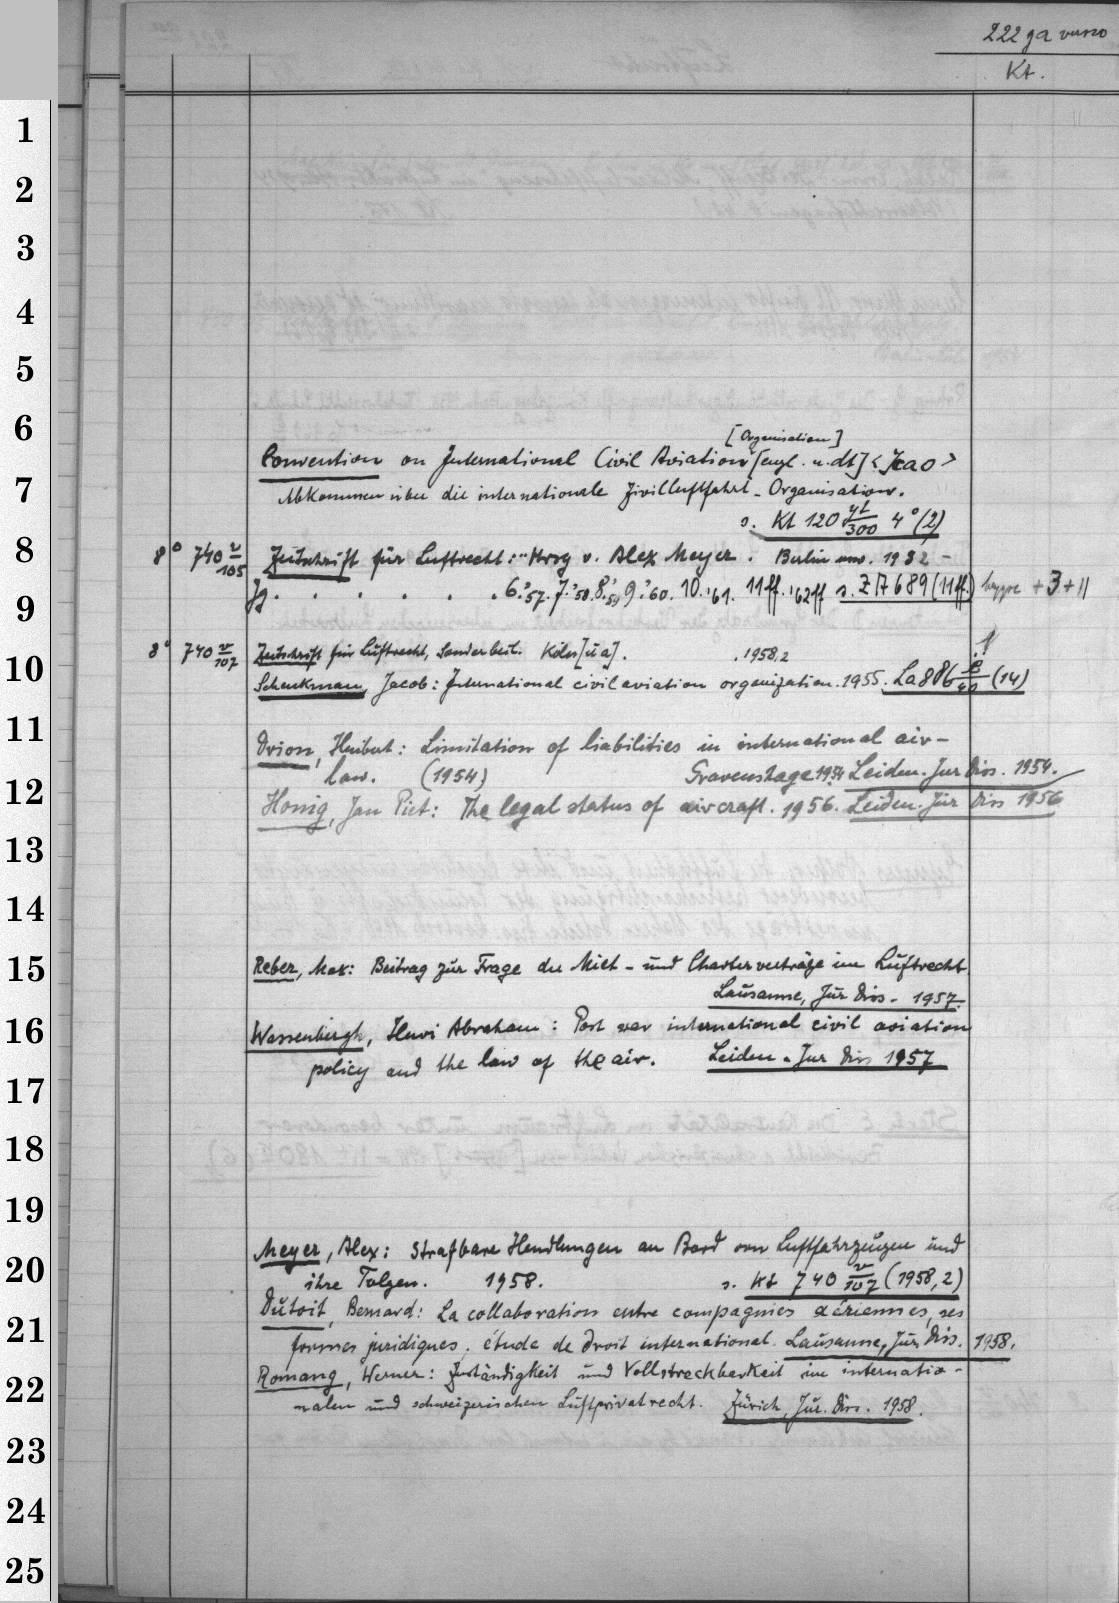 222 ga verso
Kt.
1
2
3
4
5
6
[Organisation]
Convention on International Civil Aviation [engl. u. dt] <Icao>
7
Abkommen über die internationale Zivilluftfahrt-Organisation.
s. Kt 120 yt/300 4° (2)
8
8° 740 v/105 Zeitschrift für Luftrecht: Hrsg v. Alex Meyer. Berlin usw. 1932 -
9
Jg. . . . . . . 6.'57. 7.'58. 8.'59 9.'60. 10.'61. 11ff.'62ff s. ZA 7689 (11ff.) + 3 + 11
10
8° 740 v/107 Zeitschrift für Luftrecht, Sonderheit. Köln [u a]. . 1958,2
Schenkman, Jacob: International civil aviation organization. 1955. La 886 /40 (14)
11
Drion, Huibert: Limitation of liabilities in international air-
12
law. (1954) Gravenshage 1954 Leiden. Jur Diss. 1954.
Honig, Jan Piet: The legal status of aircraft. 1956. Leiden. Jur Diss 1956
13
14
15
Reber, Max: Beitrag zur Frage der Miet- und Charterverträge im Luftrecht.
Lausanne, Jur Diss. 1957.
16
Wassenbergh, Henri Abraham: Post war international civil aviation
policy and the law of the air. Leiden. Jur Diss 1957
17
18
19
Meyer, Alex: Strafbare Handlungen an Bord von Luftfahrzeugen und
20
ihre Folgen. 1958. s. Kt 740 v/107 (1958,2)
Dutoit, Bernard: La collaboration entre compagnies aériennes, ses
21
formes juridiques. étude de droit international. Lausanne, Jur. Diss. 1958.
22
Romang, Werner: Zuständigkeit und Vollstreckbarkeit im internatio-
nalen und schweizerischen Luftprivatrecht. Zürich, Jur. Diss. 1958.
23
24
25